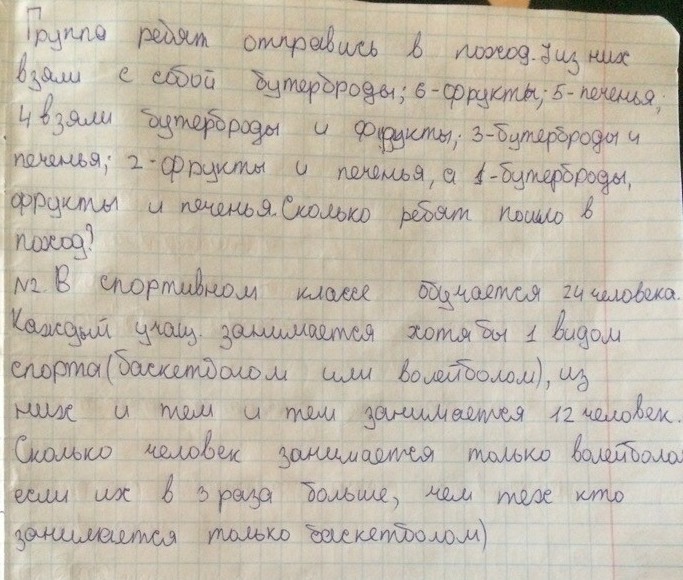 Группа ребят отправись в поход. 7 из них
взяли с собой бутерброды; 6-фрукты; 5-печенья;
4 взяли бутерброды и фрукты; 3-бутерброды и
печенья; 2-фрукты и печенья, а 1-бутерброды,
фрукты и печенья. Сколько ребят пошло в
поход?
N2. В спортивном классе обучается 24 человека.
Каждый учащ. занимается хотя бы 1 видом
спорта (баскетболом или волейболом), из
них и тем и тем занимается 12 человек.
Сколько человек занимается только волейбо
если их в 3 раза больше, чем тех кто
занимается только баскетболом)